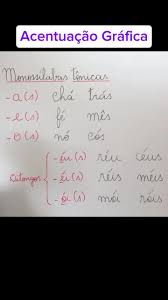 Acentuação Gráfica
Monossílabas tônicas
-a(s) chá trás
-e(s) fé mês
-o(s) nó cós
-éu(s) réu céus
Ditongos -éi(s) réis méis
-ói(s) mói róis